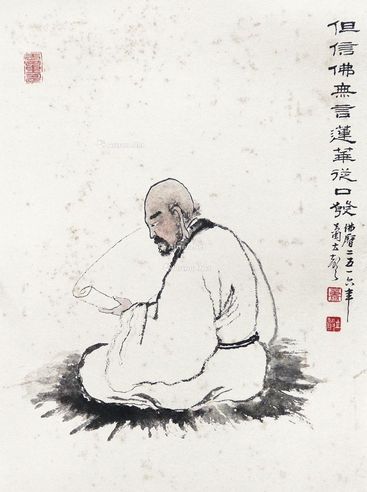 但信佛無言蓮華從口發
佛曆二五一六年